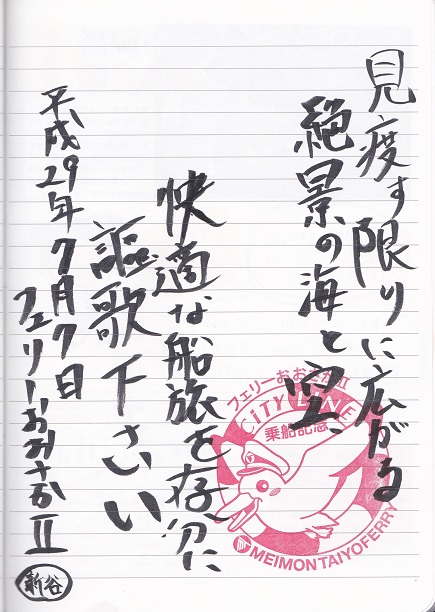 見度す限りに広がる
絶景の海と空、
快適な船旅を存分に
謳歌下さい
平成29年7月7日
フェリーおおさかⅡ
新谷
フェリーおおさかⅡ
CITY LINE
乗船記念
MEIMON TAIYO FERRY